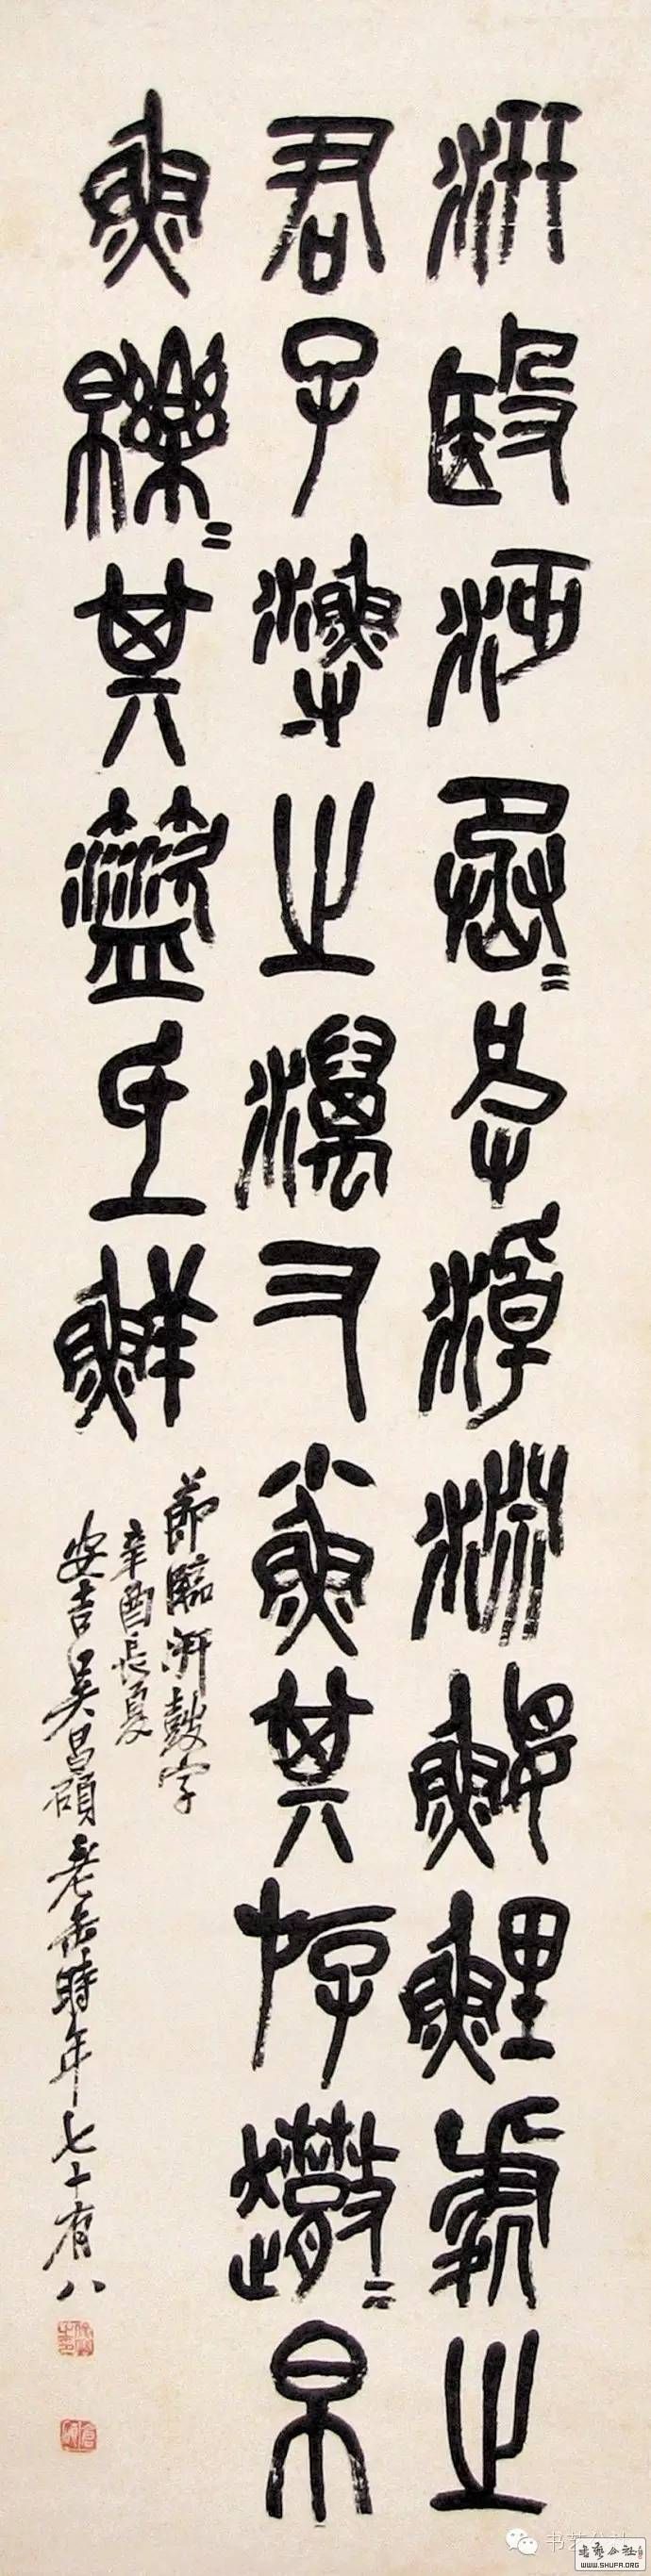 汧殹沔丞=皮淖淵鰋鯉處之
君子漁之澫又鯊其斿趣=帛
魚皪=其盜氐鮮
節臨汧鼓字
辛酉長夏
安吉吳昌碩老缶時年七十有八
书艺公社
WWW.SHUFA.ORG